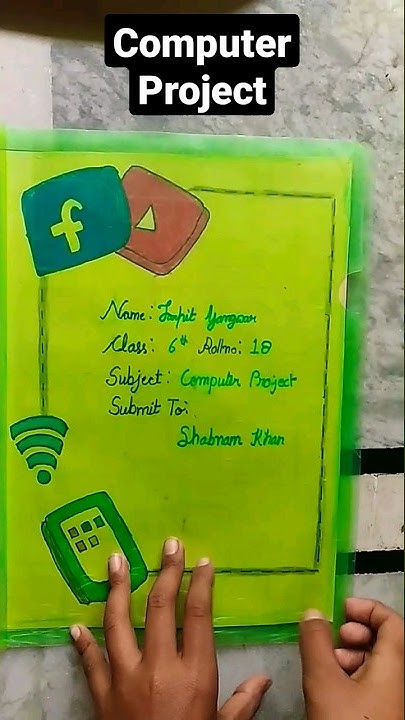 Computer
Project
f
Name:
Class: 6th Rollno: 18
Subject: Computer Project
Submit To:
Shabnam Khan